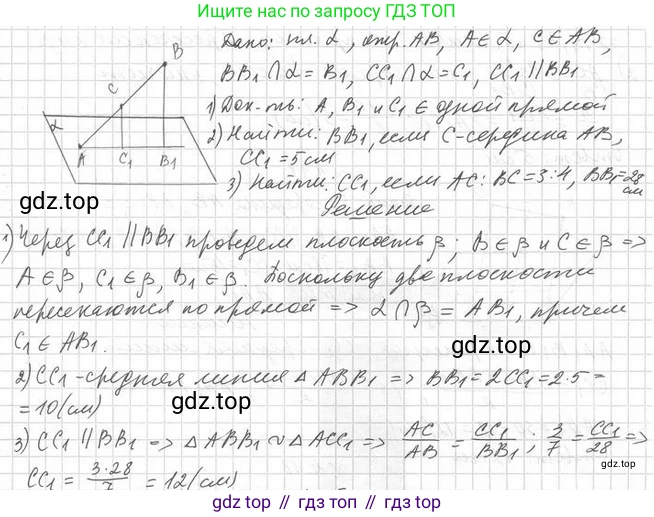 Ищите нас по запросу ГДЗ ТОП
Дано: пл. α, отр. AB, A∈α, C∈AB,
BB₁∩α=B₁, CC₁∩α=C₁, CC₁∥BB₁
1) Док-ть: A, B₁ и C₁ ∈ одной прямой
2) Найти: BB₁, если C-середина AB,
CC₁=5см
3) Найти: CC₁, если AC:BC=3:4, BB₁=28
см
α
A
C
B
C₁
B₁
gdz.top
Решение
1) Через CC₁∥BB₁ проведем плоскость β; B∈β и C∈β =>
A∈β, C₁∈β, B₁∈β. Поскольку две плоскости
пересекаются по прямой => α∩β = AB₁, причем
C₁∈AB₁.
gdz.top
2) CC₁-средняя линия △ABB₁ => BB₁=2CC₁=2·5=
=10(см)
gdz.top
3) CC₁∥BB₁ => △ABB₁ ~ △ACC₁ => AC/AB = CC₁/BB₁; 3/7 = CC₁/28 =>
gdz.top
CC₁ = 3·28/7 = 12(см)
gdz.top // гдз.топ // gdz.top